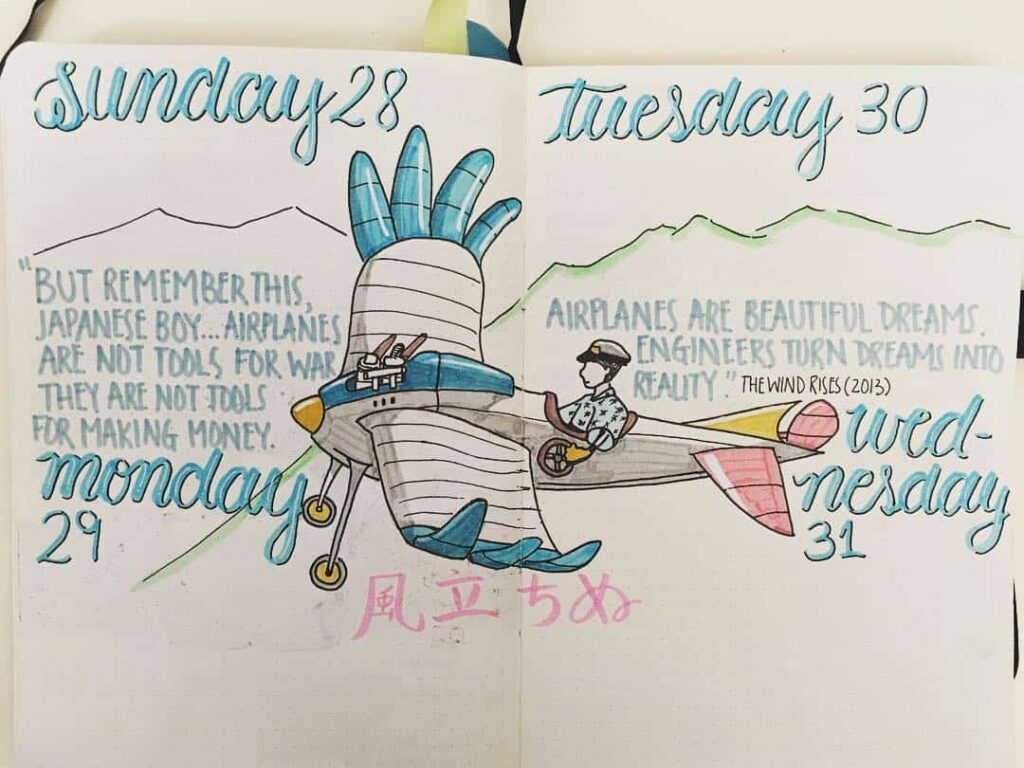 sunday 28
"BUT REMEMBER THIS,
JAPANESE BOY... AIRPLANES
ARE NOT TOOLS FOR WAR.
THEY ARE NOT TOOLS
FOR MAKING MONEY.
monday
29
tuesday 30
AIRPLANES ARE BEAUTIFUL DREAMS.
ENGINEERS TURN DREAMS INTO
REALITY." THE WIND RISES (2013)
wed-
nesday
31
風立ちぬ